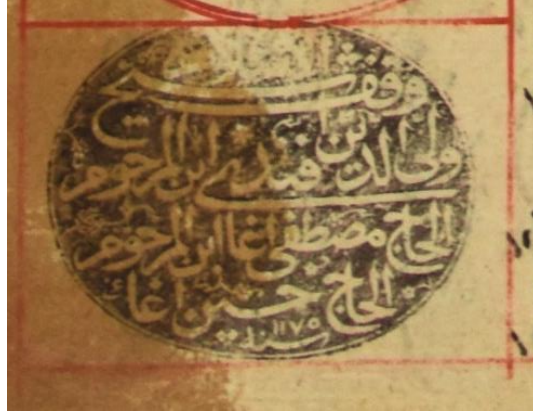 وقف شيخ
ولى الدين افندى ابن المرحوم
الحاج مصطفى اغا ابن المرحوم
الحاج حسين اغا
سنه ١١٧٥